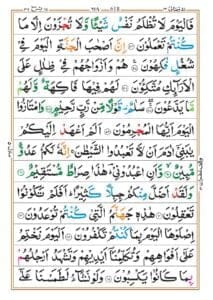 فَالْيَوْمَ لَا تُظْلَمُ نَفْسٌ شَيْئًا وَّلَا تُجْزَوْنَ اِلَّا مَا
كُنْتُمْ تَعْمَلُوْنَ اِنَّ اَصْحٰبَ الْجَنَّةِ الْيَوْمَ فِيْ
شُغُلٍ فٰكِهُوْنَ هُمْ وَاَزْوَاجُهُمْ فِيْ ظِلٰلٍ عَلَى
الْاَرَآئِكِ مُتَّكِئُوْنَ لَهُمْ فِيْهَا فَاكِهَةٌ وَّلَهُمْ
مَّا يَدَّعُوْنَ سَلٰمٌ قَوْلًا مِّنْ رَّبٍّ رَّحِيْمٍ وَامْتَازُوا
الْيَوْمَ اَيُّهَا الْمُجْرِمُوْنَ اَلَمْ اَعْهَدْ اِلَيْكُمْ
يٰبَنِيْٓ اٰدَمَ اَنْ لَّا تَعْبُدُوا الشَّيْطٰنَ اِنَّهٗ لَكُمْ عَدُوٌّ
مُّبِيْنٌ وَّاَنِ اعْبُدُوْنِيْ هٰذَا صِرَاطٌ مُّسْتَقِيْمٌ
وَلَقَدْ اَضَلَّ مِنْكُمْ جِبِلًّا كَثِيْرًا اَفَلَمْ تَكُوْنُوْا
تَعْقِلُوْنَ هٰذِهٖ جَهَنَّمُ الَّتِيْ كُنْتُمْ تُوْعَدُوْنَ
اِصْلَوْهَا الْيَوْمَ بِمَا كُنْتُمْ تَكْفُرُوْنَ اَلْيَوْمَ نَخْتِمُ
عَلٰٓى اَفْوَاهِهِمْ وَتُكَلِّمُنَآ اَيْدِيْهِمْ وَتَشْهَدُ اَرْجُلُهُمْ
بِمَا كَانُوْا يَكْسِبُوْنَ وَلَوْ نَشَآءُ لَطَمَسْنَا عَلٰٓى